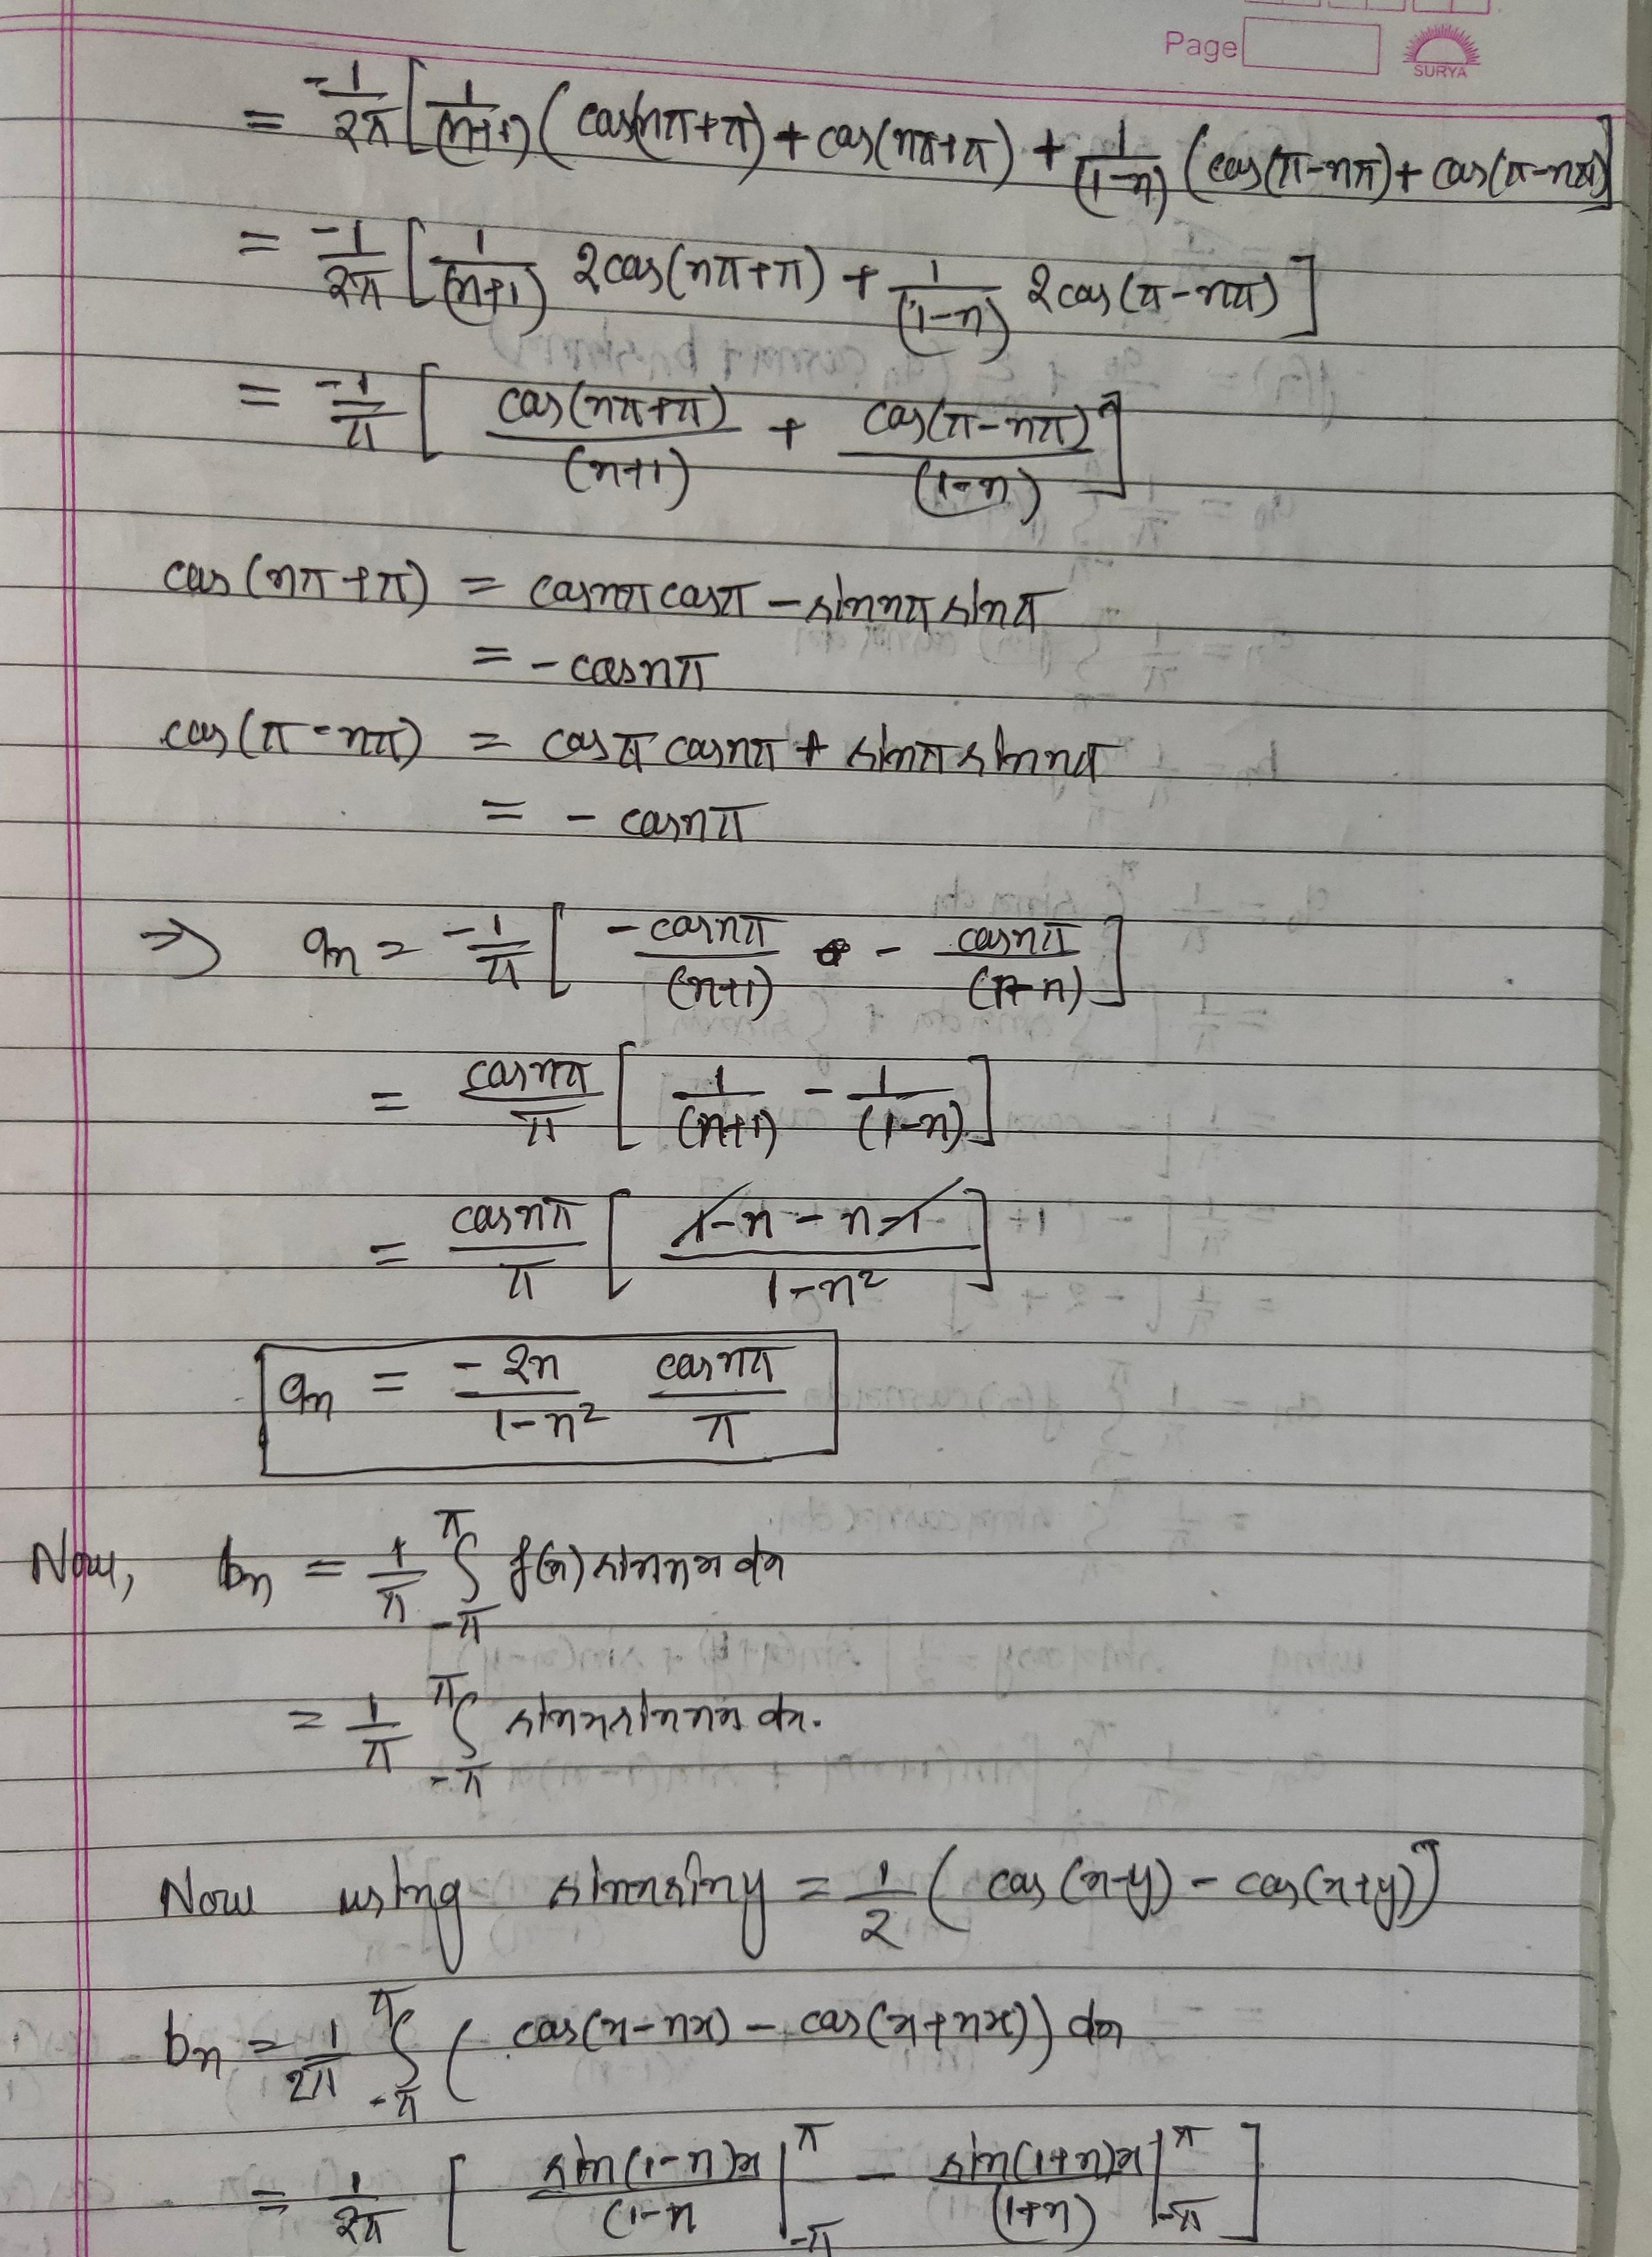 Page
SURYA
= -1/2π [ 1/(n+1) ( cos(nπ+π) + cos(nπ+π) + 1/(1-n) (cos(π-nπ) + cos(π-nπ) ]
= -1/2π [ 1/(n+1) 2cos(nπ+π) + 1/(1-n) 2cos(π-nπ) ]
= -1/π [ cos(nπ+π)/(n+1) + cos(π-nπ)/(1-n) ]
cos(nπ+π) = cosnπ cosπ - sinnπ sinπ
= - cosnπ
cos(π-nπ) = cosπ cosnπ + sinπ sinnπ
= - cosnπ
⇒ an = -1/π [ -cosnπ/(n+1) - cosnπ/(1-n) ]
= cosnπ/π [ 1/(n+1) - 1/(1-n) ]
= cosnπ/π [ (1-n-n-1)/(1-n²) ]
an = -2n/(1-n²) cosnπ/π
Now, bn = 1/π ∫_{-π}^{π} f(x) sinnx dx
= 1/π ∫_{-π}^{π} sinx sinnx dx.
Now using sinx siny = 1/2 ( cos(x-y) - cos(x+y) ]
bn = 1/2π ∫_{-π}^{π} ( cos(x-nx) - cos(x+nx)) dx
= 1/2π [ sin(1-n)x/(1-n |_{-π}^{π} - sin(1+n)x/(1+n) |_{-π}^{π} ]